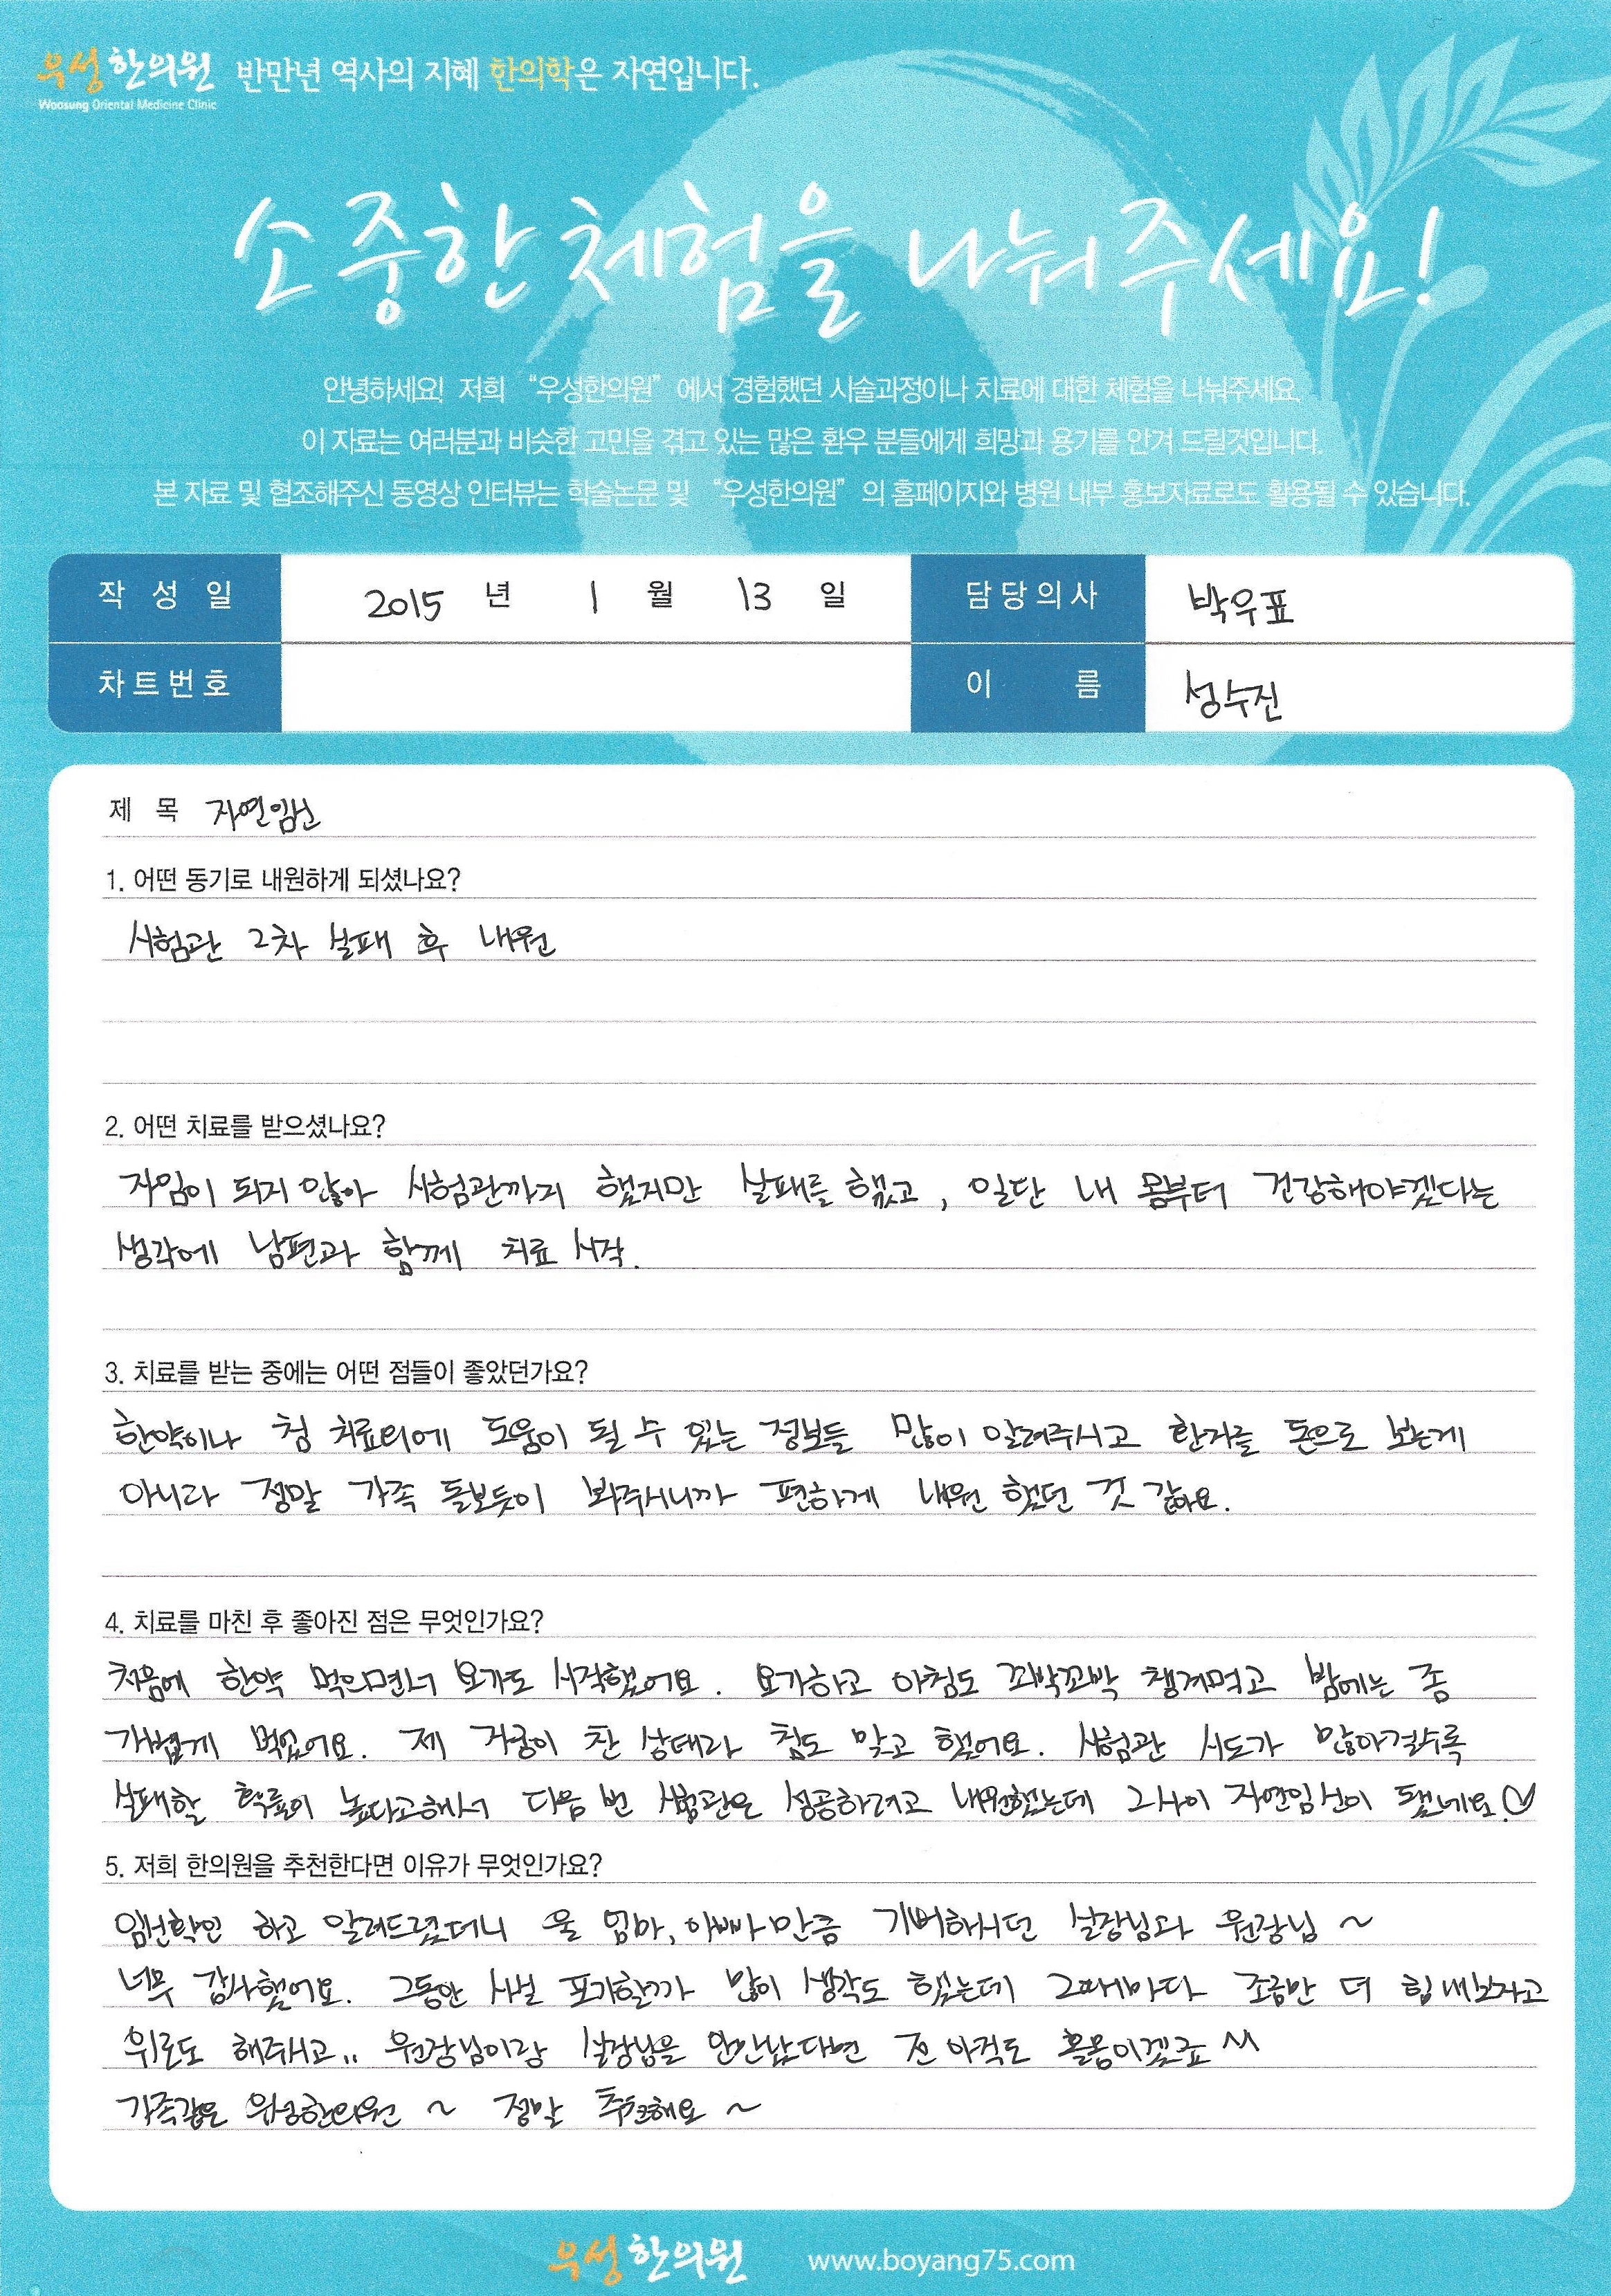 우성한의원 반만년 역사의 지혜 한의학은 자연입니다.
Woosung Oriental Medicine Clinic
소중한 체험을 나눠주세요!
안녕하세요! 저희 “우성한의원” 에서 경험했던 시술과정이나 치료에 대한 체험을 나눠주세요.
이 자료는 여러분과 비슷한 고민을 겪고 있는 많은 환우 분들에게 희망과 용기를 안겨 드릴것입니다.
본 자료 및 협조해주신 동영상 인터뷰는 학술논문 및 “우성한의원” 의 홈페이지와 병원 내부 홍보자료로도 활용될 수 있습니다.
작성일 2015 년 1 월 13 일 담당의사 박우표
차트번호 이름 성수진
제 목 자연임신
1. 어떤 동기로 내원하게 되셨나요?
시험관 2차 실패 후 내원
2. 어떤 치료를 받으셨나요?
자임이 되지 않아 시험관까지 했지만 실패를 했고, 일단 내 몸부터 건강해야겠다는
생각에 남편과 함께 치료 시작.
3. 치료를 받는 중에는 어떤 점들이 좋았던가요?
한약이나 침 치료외에 도움이 될 수 있는 정보들 많이 알려주시고 환자를 돈으로 보는게
아니라 정말 가족 돌보듯이 봐주시니까 편하게 내원 했던 것 같아요.
4. 치료를 마친 후 좋아진 점은 무엇인가요?
처음에 한약 먹으면서 요가도 시작했어요. 요가하고 아침도 꼬박꼬박 챙겨먹고 밤에는 좀
가볍게 먹었어요. 제 자궁이 찬 상태라 침도 맞고 했어요. 시험관 시도가 많아질수록
실패할 확률이 높다고해서 다음 번 시험관은 성공하려고 내원했는데 그사이 자연임신이 됐네요♡
5. 저희 한의원을 추천한다면 이유가 무엇인가요?
임신확인 하고 알려드렸더니 울 엄마, 아빠만큼 기뻐하시던 실장님과 원장님 ~
너무 감사했어요. 그동안 사실 포기할까 많이 생각도 했는데 그때마다 조금만 더 힘내보자고
위로도 해주시고.. 원장님이랑 실장님을 안만났다면 전 아직도 홀몸이겠죠 ^^
가족같은 우성한의원 ~ 정말 추천해요 ~
우성한의원 www.boyang75.com